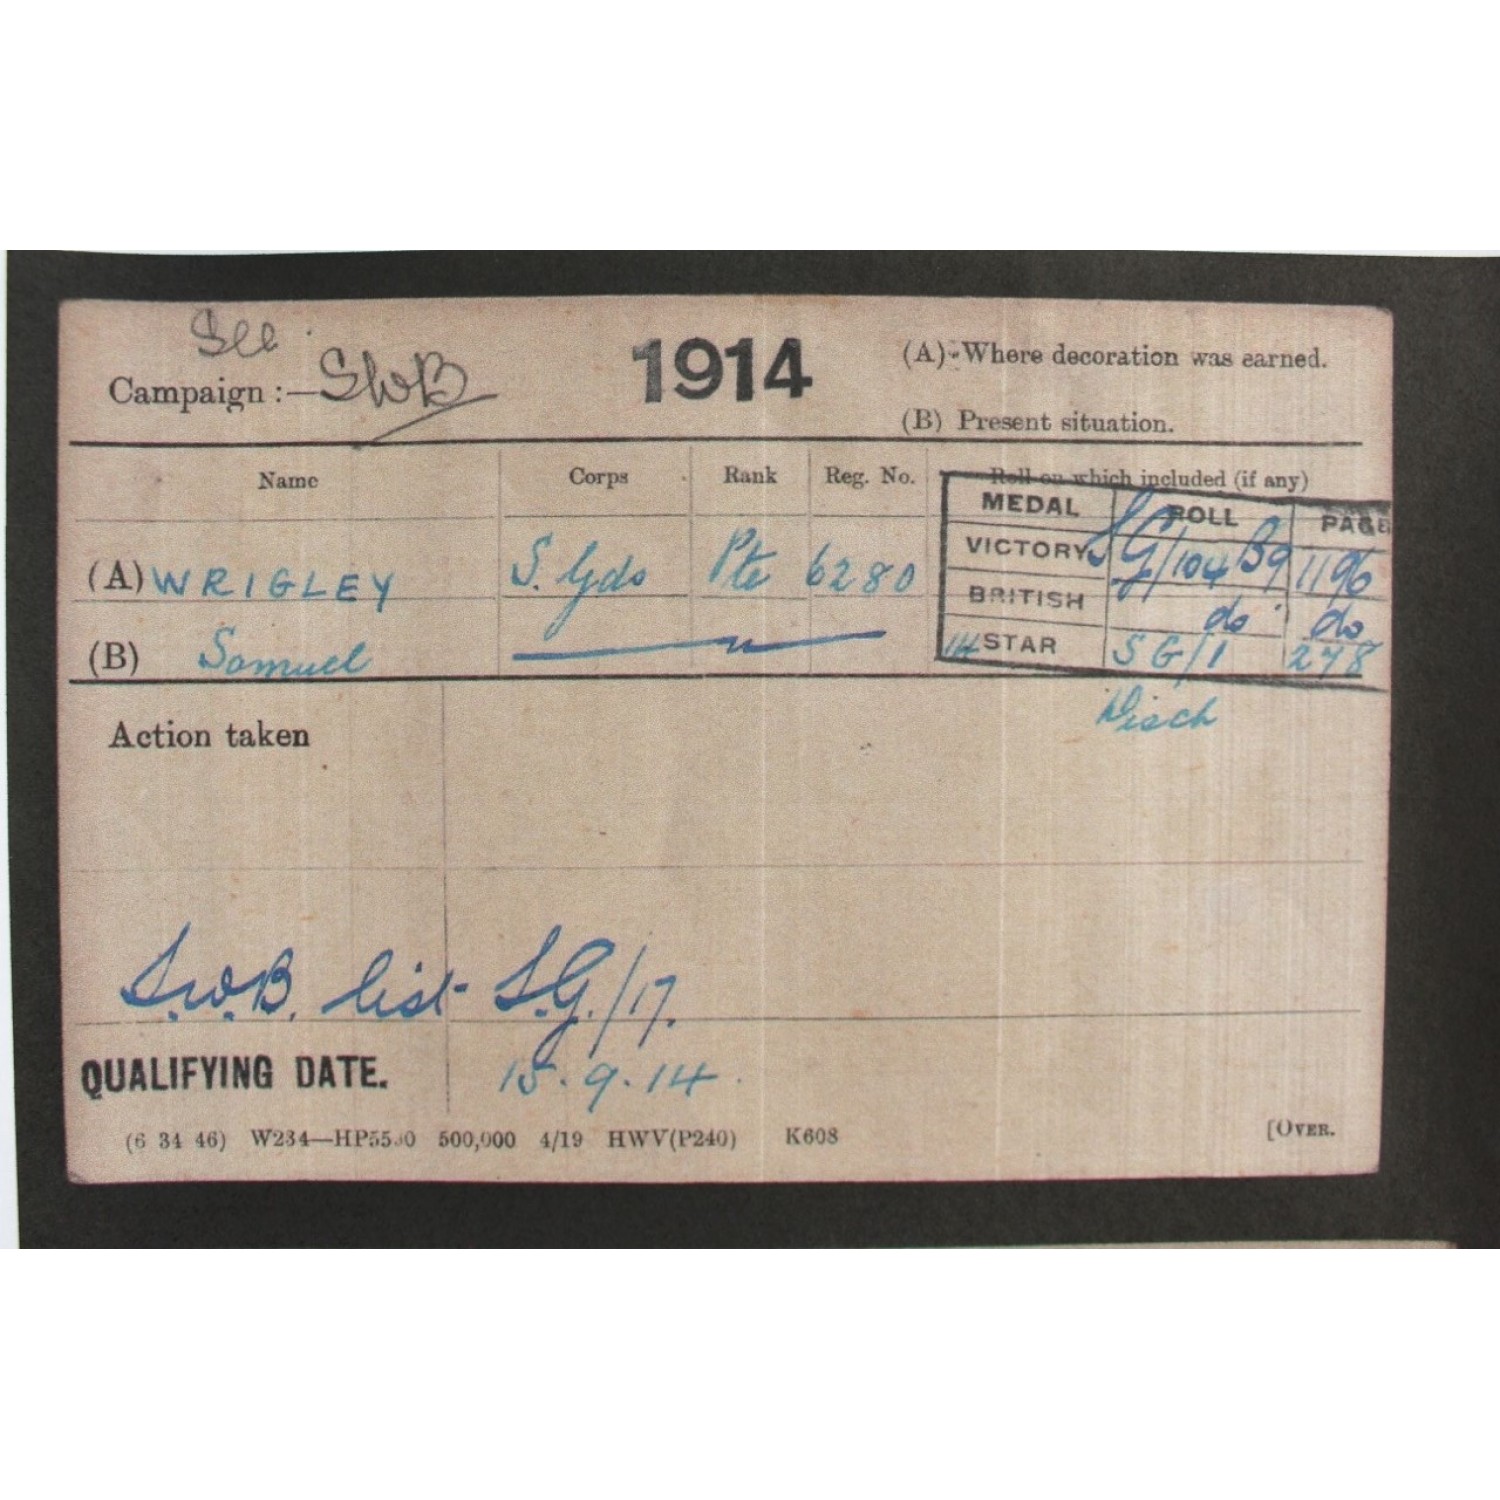 See
Campaign :— SWB 1914 (A) Where decoration was earned.
(B) Present situation.
Name Corps Rank Reg. No. Roll on which included (if any)
MEDAL ROLL PAGE
(A) WRIGLEY S. Gds Pte 6280 VICTORY SG/104 B9 1196
BRITISH do do
(B) Samuel 14 STAR SG/1 278
Disch
Action taken
S.W.B. list S.G./17.
QUALIFYING DATE. 15.9.14.
(6 34 46) 500,000 4/19 HWV(P240) K608 [OVER.